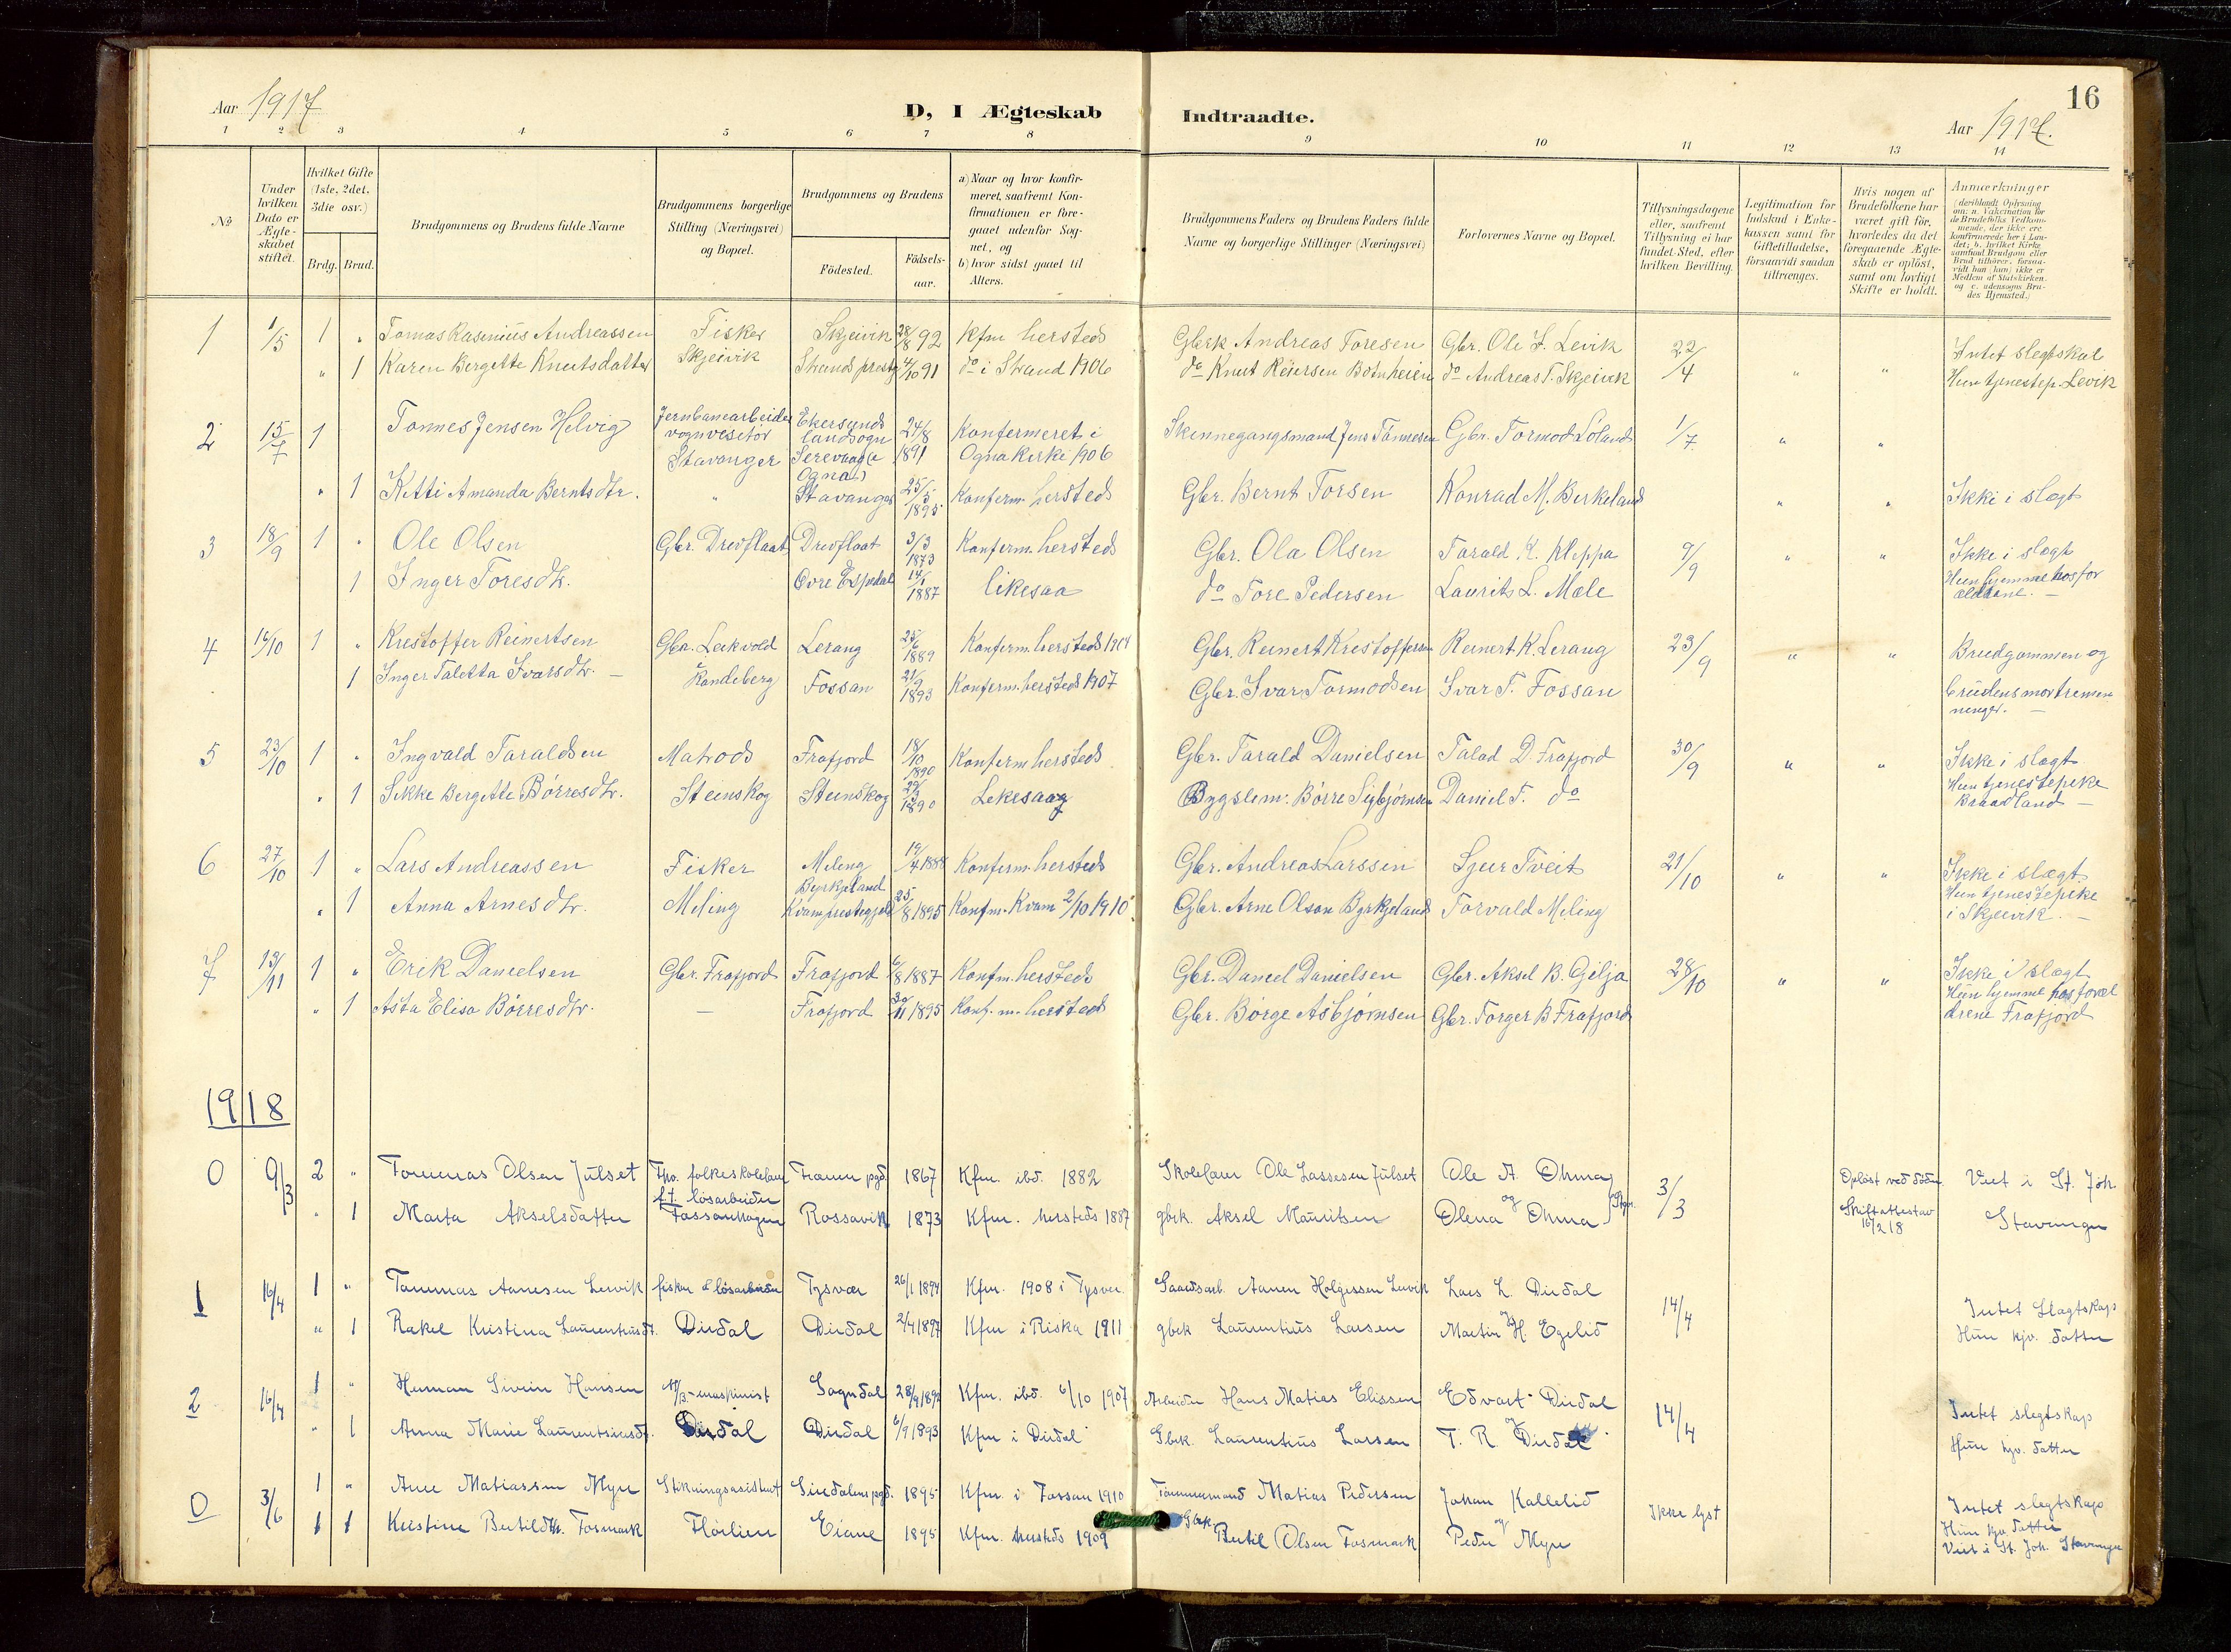 Aar 1917
D, I Ægteskab
Indtraadte.
16
Aar 1917.
1 2 3 4 5 6 7 8
9 10 11 12 13 14
№
Under hvilken Dato er Ægteskabet stiftet.
Hvilket Gifte (1ste, 2det, 3die osv.)
Brdg. Brud.
Brudgommens og Brudens fulde Navne
Brudgommens borgerlige Stilling (Næringsvei) og Bopæl.
Brudgommens og Brudens
Födested.
Födsels-aar.
a) Naar og hvor konfirmeret, saafremt Konfirmationen er foregaaet udenfor Sognet, og
b) hvor sidst gaaet til Alters.
Brudgommens Faders og Brudens Faders fulde Navne og borgerlige Stillinger (Næringsvei)
Forlovernes Navne og Bopæl.
Tillysningsdagene eller, saafremt Tillysning ei har fundet Sted, efter hvilken Bevilling.
Legitimation for Indskud i Enkekassen samt for Giftetilladelse, forsaavidt saadan tiltrænges.
Hvis nogen af Brudefolkene har været gift før, hvorledes da det foregaaende Ægteskab er opløst, samt om lovligt Skifte er holdt.
Anmærkninger (deriblandt Oplysning om: a. Vakcination for de Brudefolks Vedkommende, der ikke ere konfirmerede her i Landet; b. hvilket Kirkesamfund Brudgom eller Brud tilhører, forsaavidt han (hun) ikke er Medlem af Statskirken, og c. udensogns Brudes Hjemsted.)
1 1/5 1 " Tomas Rasmius Andreassen Fisker Skjeivik 28/8 92 Kfm hersteds Gbrk Andreas Toresen Gbr. Ole J. Levik 22/4 " " Intet slegtskab
" 1 Karen Bergette Knutsdatter Skjeivik Strands prestg 4/10 91 do i Strand 1906 do Knut Reiersen Botnheien do Andreas T. Skjeivik Hun tjenestep. Levik
2 15/7 1 Tønnes Jensen Helvig Jernbanearbeider vognvesitør Stavanger Ekersunds landsogn 24/8 1891 Konfermeret i Ogna Kirke 1906 Skinnegangsmand Jens Tønnesen Gbr. Tormod Løland 1/7 " "
" 1 Kitti Amanda Berntsdtr. " Stavanger 25/5 1895 Konferm. hersteds Gbr. Bernt Torsen Konrad M. Birkeland " " Ikki i slægt
3 18/9 1 " Ole Olsen Gbr. Drevflaat Drevflaat 3/3 1873 Konferm. hersteds Gbr. Ola Olsen Tarald K. Kleppa 9/9 " " Ikke i slægt
1 Inger Toresdtr. Øvre Espedal 14/1 1887 likesaa do Tore Pedersen Laurits L. Mæle Hun hjemme hos for ældrene. —
4 16/10 1 " Kristoffer Reinertsen Gbr. Leikvold Lerang 25/6 1889 Konferm. hersteds 1904 Gbr. Reinert Kristoffersen Reinert K. Lerang 23/9 " " Brudgommen og
1 Inger Taletta Ivarsdtr. — Randeberg Fossan 21/9 1893 Konferm. hersteds 1907 Gbr. Ivar Tormodsen Ivar T. Fossan brudens mor tremenninger. —
5 23/10 1 " Ingvald Taraldsen Matros Frafjord 18/10 1890 Konferm hersteds Gbr. Tarald Danielsen Talad D. Frafjord 30/9 " " Ikke i slægt
" 1 Sikke Bergette Børresdtr. Steinskog Steinskog 1890 Lekesaa Bygslem. Børre Sigbjørnsen Daniel T. do Hun tjenestepeke Braadland —
6 27/10 1 " Lars Andreassen Fisker Meling 19/4 1888 Konferm. hersteds Gbr. Andreas Larssen Sjur Tveit 21/10 " " Ikke i slægt
" 1 Anna Arnesdtr. Meling Byrkjeland Kvamprestegjeld 25/8 1895 Konfm. Kvam 2/10 1910 Gbr. Arne Olson Byrkjeland Torvald Meling Hun tjenestepike i Skjeivik. —
7 13/11 1 " Erik Danielsen Gbr. Frafjord Frafjord 6/8 1887 Konfm. hersteds Gbr. Daniel Danielsen Gbr. Aksel B. Gilja 28/10 " " Ikke i slægt
" 1 Asta Elisa Børresdtr. — Frafjord 30/11 1895 Konf. m. hersteds Gbr. Børge Asbjørnsen Gbr. Torger B Frafjord Hun hjemme hos forældrene Frafjord
1918
0 9/3 2 " Tommas Olsen Julset Fho. folkeskolelærer f.t. løsarbeider Fræna pgd. 1867 Kfm. ibd. 1882 Skolelærer Ole Lassesen Julset Ole A. Ohma og 3/3 Opløst ved døden Viet i St. Joh.
" 1 Marta Akselsdatter Rossavik 1873 Kfm. hersteds 1887 gbrk. Aksel Mauritsen Olena Ohma Skifteattest av 16/2 18 Stavanger
1 16/4 1 " Tommas Aanesen Lervik fisker & løsarbeider Tysvær 26/1 1894 Kfm. 1908 i Tysvær. Gaardsarb. Aanen Holgersen Lervik Lars L. Dirdal 14/4 Intet Slagtskap
" 1 Rakel Kristina Laurentiusdt. Dirdal Dirdal 2/4 1897 Kfm i Riska 1911 gbrk Laurentius Larsen Martin H. Egelid Hun hjv. datter
2 16/4 1 " Herman Sivein Hansen maskinist Sogndal 28/9 1892 Kfm. ibd. 6/10 1907 Arbeider Hans Matias Elissen Edvart Dirdal 14/4 Intet slegtskap
" 1 Anna Marie Laurentsiusdt. Dirdal Dirdal 6/9 1893 Kfm i Dirdal Gbrk. Laurentius Larsen T. R. Dirdal Hun hjv. datter
0 3/6 1 " Arne Matiassen Myre Stikningsasistent Sirdalens pgd. 1895 Kfm. i Fossan 1910 Tømmermand Matias Pedersen Johan Kallelid og Ikke lyst Intet slegtskap
1 1 Kristine Bertildtr. Fosmark Flørlien Eiane 1895 Kfm. hersteds 1909 Gbrk. Bertil Olsen Fosmark Peder Myre Hun hjv. datter
Viet i St. Joh. Stavanger